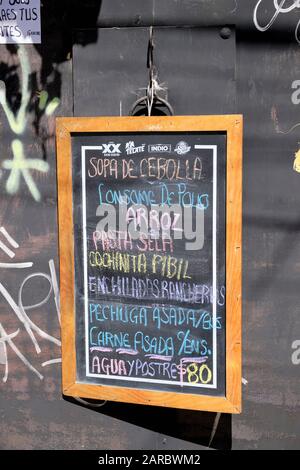 XX TECATE INDIO
SOPA DE CEBOLLA
CONSOME DE POLLO
ARROZ
PASTA SECA
COCHINITA PIBIL
ENCHILADAS RANCHERAS
PECHUGA ASADA %BS
CARNE ASADA %NS.
AGUA Y POSTRE $80
alamy